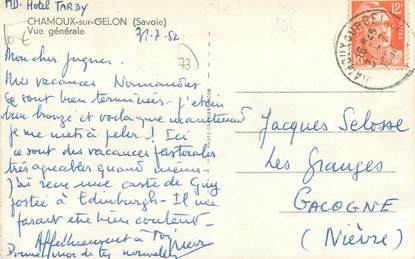 MD. Hotel TARDY
CHAMOUX-sur-GELON (Savoie)
Vue générale
31-7-52
73
Mon cher Jacques.
Mes vacances Normandes
se sont bien terminées - J'étais
bien bronzé et voilà que maintenant
je me mets à peler! Ici
ce sont des vacances pastorales
très agréables quand même -
J'ai reçu une carte de Guy
postée à Edinburgh - Il me
paraît être bien content -
Affectueusement à toi
Donnes moi de tes nouvelles
Jacques Selosse
Les Granges
GACOGNE
(Nièvre)
12F